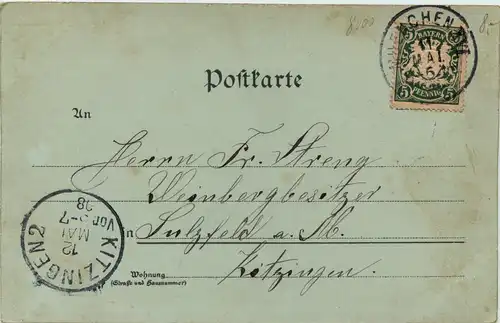 8,00
8,-
BAYERN
5 5
PFENNIG
11 MAI.
Postkarte
An
Herrn Fr. Streng
Weinbergbesitzer
in Sulzfeld a. M.
Kitzingen.
Wohnung
(Straße und Hausnummer)
KITZINGEN 2
12
MAI
VOR 6-7
98